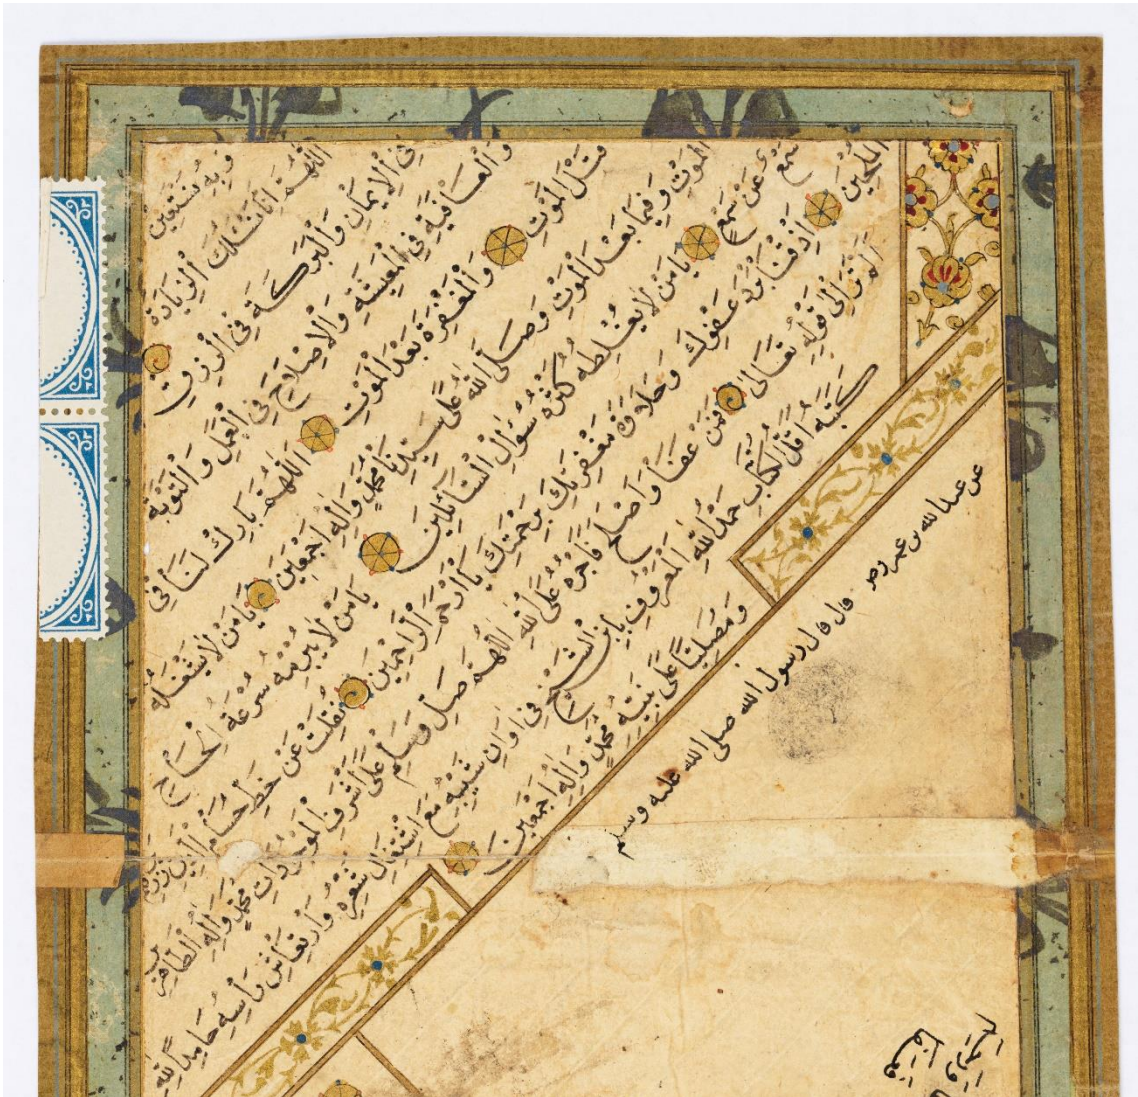 وَبِهِ نَسْتَعِينُ
اَللّٰهُمَّ اِنَّا نَسْئَلُكَ الزِّيَادَةَ
فِي الْاِيمَانِ وَالْبَرَكَةَ فِي الرِّزْقِ
وَالْعَافِيَةَ فِي الْمَعِيشَةِ وَالْاِصْلَاحَ فِي الْعَمَلِ وَالتَّوْبَةَ
قَبْلَ الْمَوْتِ وَالْمَغْفِرَةَ بَعْدَ الْمَوْتِ اَللّٰهُمَّ بَارِكْ لَنَا فِي
الْمَوْتِ وَفِيمَا بَعْدَ الْمَوْتِ وَصَلَّى اللهُ عَلَى سَيِّدِنَا مُحَمَّدٍ وَاٰلِهِ اَجْمَعِينَ يَا مَنْ لَا يَشْغَلُهُ
سَمْعٌ عَنْ سَمْعٍ يَا مَنْ لَا يُغَلِّطُهُ كَثْرَةُ سُؤَالِ السَّائِلِينَ يَا مَنْ لَا يُبْرِمُهُ سُرْعَةُ اِلْحَاحِ
الْمُلِحِّينَ اَذِقْنَا بَرْدَ عَفْوِكَ وَحَلَاوَةَ مَغْفِرَتِكَ بِرَحْمَتِكَ يَا اَرْحَمَ الرَّاحِمِينَ نُقِلَتْ عَنْ خَطِّ حُسَامِ الدِّينِ
اَلَمْ تَرَ اِلَى قَوْلِهِ تَعَالَى فَمَنْ عَفَا وَاَصْلَحَ فَاَجْرُهُ عَلَى اللهِ اَللّٰهُمَّ صَلِّ وَسَلِّمْ عَلَى اَشْرَفِ الْمَوْجُودَاتِ مُحَمَّدٍ وَاٰلِهِ الطَّاهِرِينَ
كَتَبَهُ اَقَلُّ الْكُتَّابِ حَمْدُ اللهِ الْمَعْرُوفِ بِابْنِ الشَّيْخِ فِي اَوَانِ شَيْبِهِ مَعَ اشْتِعَالِ شَعْرِهِ وَارْتِعَاشِ رَأْسِهِ حَامِدًا لِلهِ
وَمُصَلِّيًا عَلَى نَبِيِّهِ مُحَمَّدٍ وَاٰلِهِ اَجْمَعِينَ
عن عبدالله بن عمر رضى قال قال رسول الله صلى الله عليه وسلم